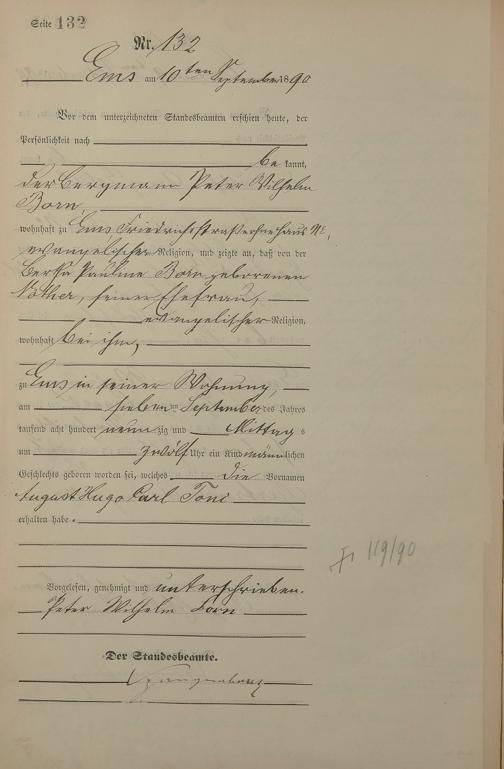 Seite 132
Nr. 132
Ems am 10ten September 1890
Vor dem unterzeichneten Standesbeamten erschien heute, der
Persönlichkeit nach
bekannt,
der Bergmann Peter Wilhelm
Born,
wohnhaft zu Ems Friedrichstraße ohne Haus Nr.,
evangelischer Religion, und zeigte an, daß von der
Berta Pauline Born geborenen
Nöther, seiner Ehefrau,
evangelischer Religion,
wohnhaft bei ihm,
zu Ems in seiner Wohnung,
am sieben ten September des Jahres
tausend acht hundert neunzig und Mittags
um zwölf Uhr ein Kind männlichen
Geschlechts geboren worden sei, welches die Vornamen
August Hugo Carl Toni
erhalten habe.
Vorgelesen, genehmigt und unterschrieben.
Peter Wilhelm Born
Der Standesbeamte.
† 119/90